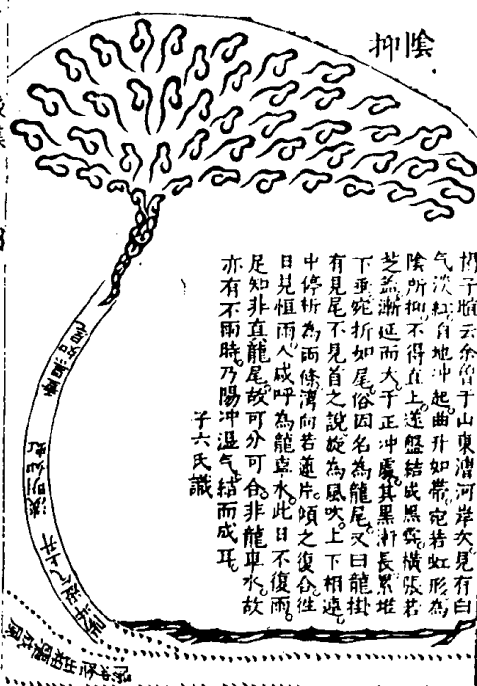 陰抑
子暄云余曾于山東濟河岸次見有白
气淡紅自地冲起曲升如帶宛若虹形為
陰所抑不得直上遂盤結成黑雲橫張若
芝蓋漸延而大于正冲處其黑漸長累堆
下垂宛折如尾俗因名為龍尾又曰龍掛
有見尾不見首之說旋為風吹上下相遠
中停折為兩條濟向若蓮片頃之復合往
日見恒雨人咸呼為龍車水此日不復雨
足知非直龍尾故可分可合非龍車水故
亦有不雨時乃陽冲濕气結而成耳
子六氏識
气上升